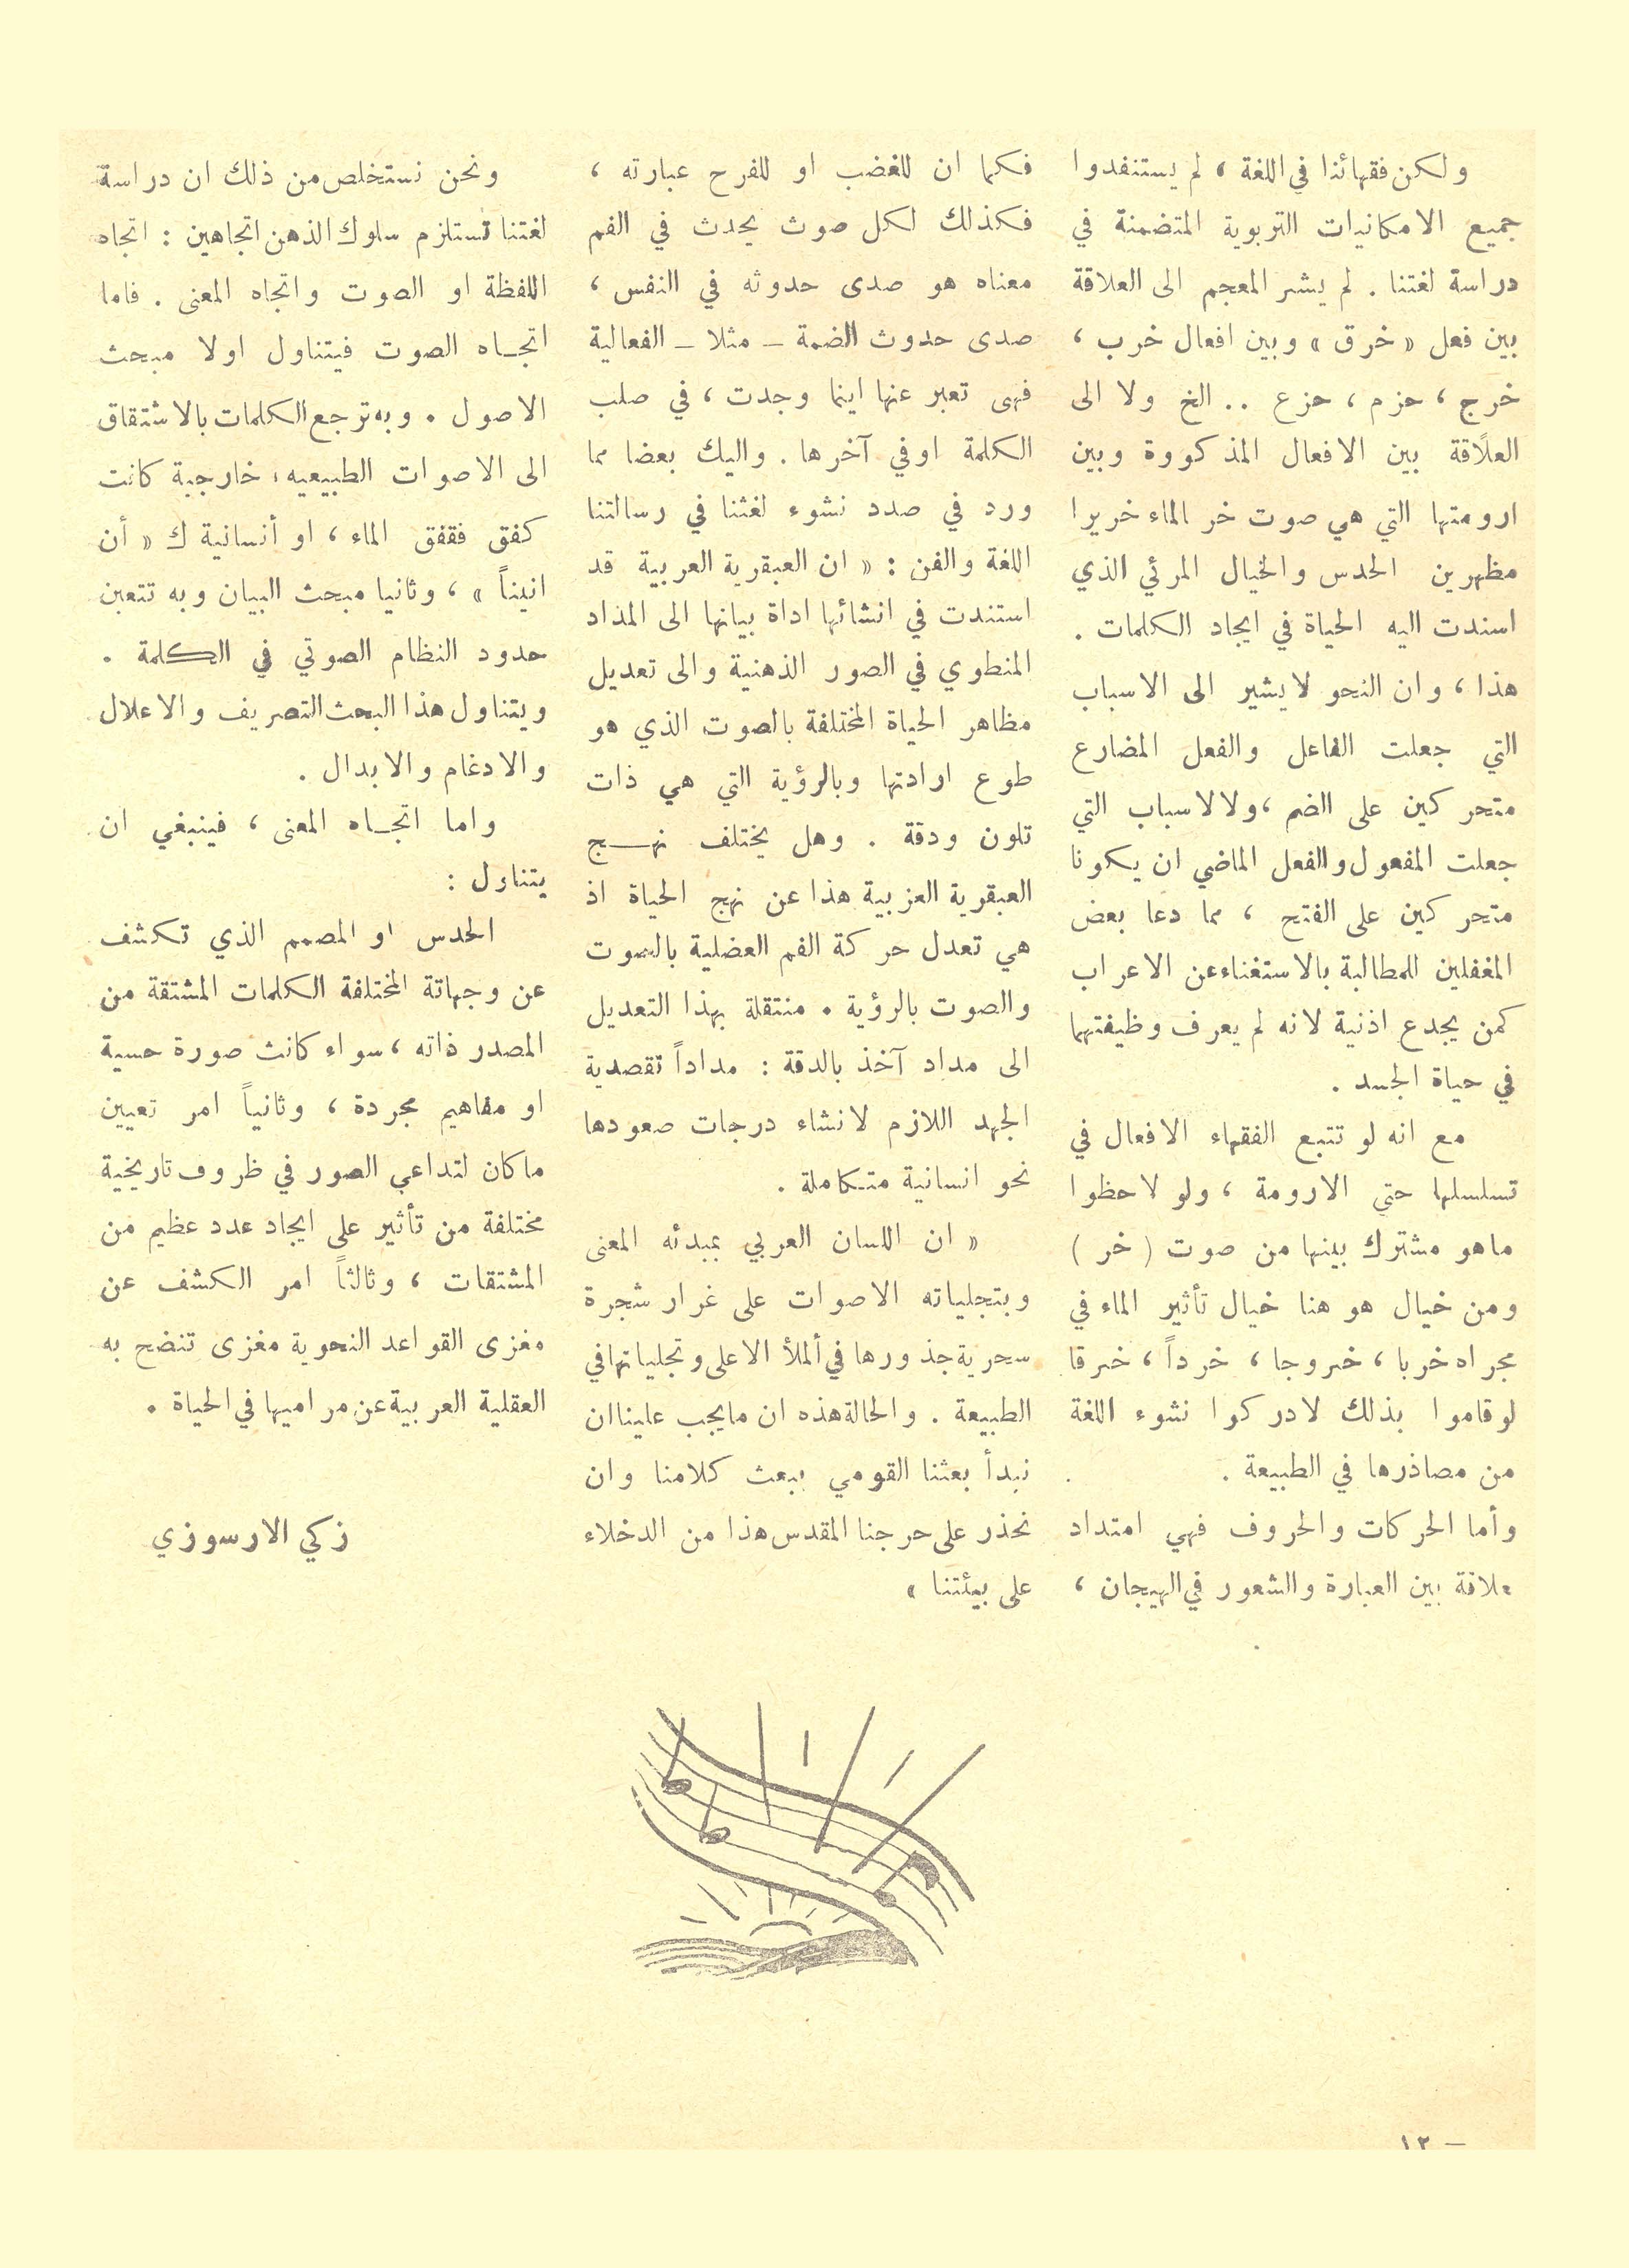 ولكن فقهائنا في اللغة ، لم يستنفدوا
جميع الامكانيات التربوية المتضمنة في
دراسة لغتنا . لم يشر المعجم الى العلاقة
بين فعل « خرق » وبين افعال خرب ،
خرج ، حزم ، حزع .. الخ ولا الى
العلاقة بين الافعال المذكووة وبين
ارومتها التي هي صوت خر الماء خريرا
مظهرين الحدس والخيال المرئي الذي
اسندت اليه الحياة في ايجاد الكلمات .
هذا ، وان النحو لايشير الى الاسباب
التي جعلت الفاعل والفعل المضارع
متحركين على الضم ، ولالاسباب التي
جعلت المفعول والفعل الماضي ان يكونا
متحركين على الفتح ، مما دعا بعض
المغفلين للمطالبة بالاستغناء عن الاعراب
كمن يجدع اذنية لانه لم يعرف وظيفتهما
في حياة الجسد .
مع انه لو تتبع الفقهاء الافعال في
تسلسلها حتى الارومة ، ولو لاحظوا
ماهو مشترك بينها من صوت ( خر )
ومن خيال هو هنا خيال تأثير الماء في
مجراه خربا ، خروجا ، خرداً ، خرقا
لوقاموا بذلك لادركوا نشوء اللغة
من مصاذرها في الطبيعة .
وأما الحركات والحروف فهي امتداد
علاقة بين العبارة والشعور في الهيجان ،
فكما ان للغضب او للفرح عبارته ،
فكذلك لكل صوث يحدث في الفم
معناه هو صدى حدوثه في النفس ،
صدى حدوث الضمة _ مثلا _ الفعالية
فهى تعبر عنها اينما وجدت ، في صلب
الكلمة اوفي آخرها . واليك بعضا مما
ورد في صدد نشوء لغثنا في رسالتنا
اللغة والفن : « ان العبقرية العربية قد
استندت في انشائها اداة بيانها الى المداد
المنطوي في الصور الذهنية والى تعديل
مظاهر الحياة المختلفة بالصوت الذي هو
طوع ارادتها وبالرؤية التي هي ذات
تلون ودقة . وهل يختلف نهــج
العبقرية العزبية هذا عن نهج الحياة اذ
هي تعدل حركة الفم العضلية بالصوت
والصوت بالرؤية . منتقلة بهذا التعديل
الى مداد آخذ بالدقة : مداداً تقصدية
الجهد اللازم لانشاء درجات صعودها
نحو انسانية متكاملة .
« ان اللسان العربي بمبدئه المعنى
وبتجلياته الاصوات على غرار شجرة
سحرية جذورها في ألملأ الاعلى وتجلياتها في
الطبيعة . والحالة هذه ان مايجب علينا ان
نبدأ بعثنا القومي ببعث كلامنا وان
نحذر على حرجنا المقدس هذا من الدخلاء
على بيئتنا »
ونحن نستخلص من ذلك ان دراسة
لغتنا تستلزم سلوك الذهن اتجاهين : اتجاه
اللفظة او الصوت واتجاه المعنى . فاما
اتجــاه الصوت فيتناول اولا مبحث
الاصول . وبه ترجع الكلمات بالاشتقاق
الى الاصوات الطبيعيه ، خارجية كانت
كفق فقفق الماء ، او أنسانية ك « أن
انيناً » ، وثانيا مبحث البيان وبه تتعين
حدود النظام الصوتي في الكلمة .
ويتناول هذا البحث التصريف والاعلال
والادغام والابدال .
واما اتجــاه المعنى ، فينبغي ان
يتناول :
الحدس او المصمم الذي تكشف
عن وجهاتة المختلفة الكلمات المشتقة من
المصدر ذاته ، سواء كانث صورة حسية
او مفاهيم مجردة ، وثانياً امر تعيين
ماكان لتداعي الصور في ظروف تاريخية
مختلفة من تأثير على ايجاد عدد عظيم من
المشتقات ، وثالثاً امر الكشف عن
مغزى القواعد النحوية مغزى تنضح به
العقلية العربية عن مراميها في الحياة .
زكي الارسوزي
– ١٢